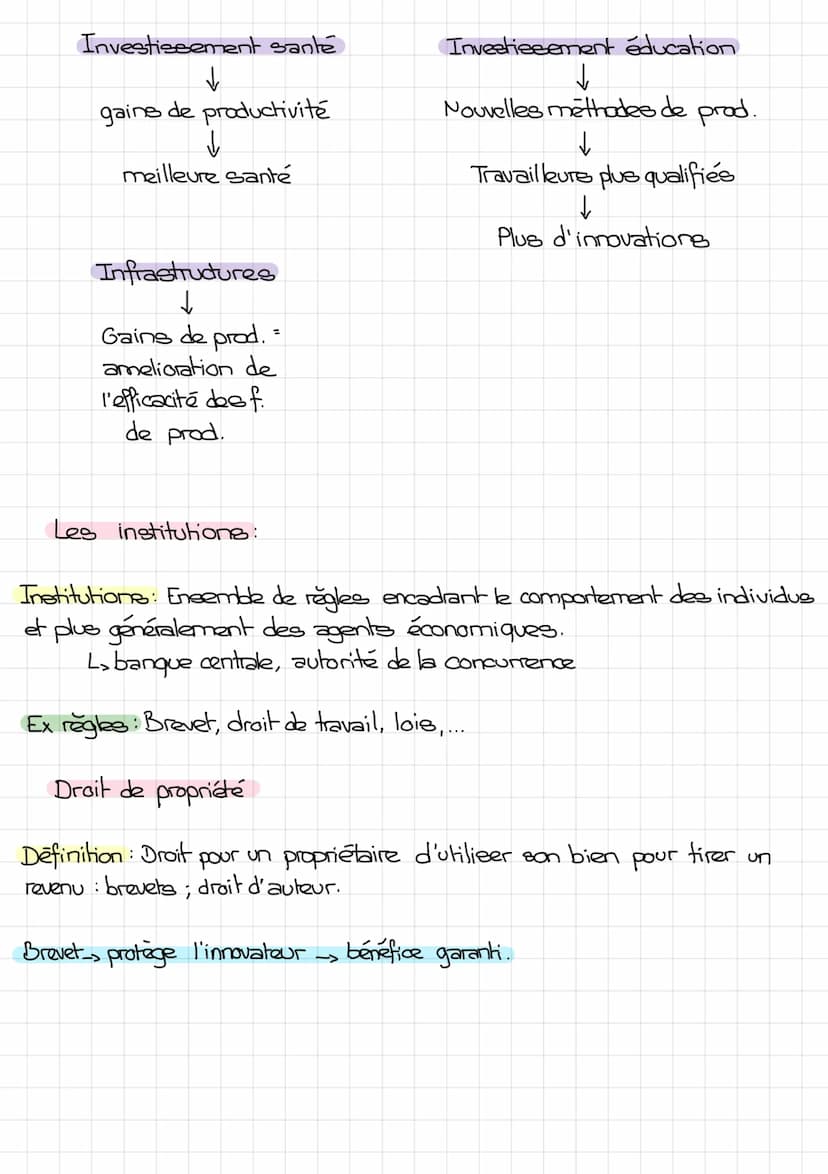 Investissement santé
↓
gains de productivité
↓
meilleure santé
Investissement éducation
↓
Nouvelles méthodes de prod.
↓
Travailleurs plus qualifiés
↓
Plus d'innovations
Infrastructures
↓
Gains de prod. =
amelioration de
l'efficacité des f.
de prod.
Les institutions :
Institutions : Ensemble de règles encadrant le comportement des individus
et plus généralement des agents économiques.
↳ banque centrale, autorité de la concurrence
Ex règles : Brevet, droit de travail, lois,...
Droit de propriété
Définition : Droit pour un propriétaire d'utiliser son bien pour tirer un
revenu : brevets ; droit d'auteur.
Brevet → protège l'innovateur → bénéfice garanti.